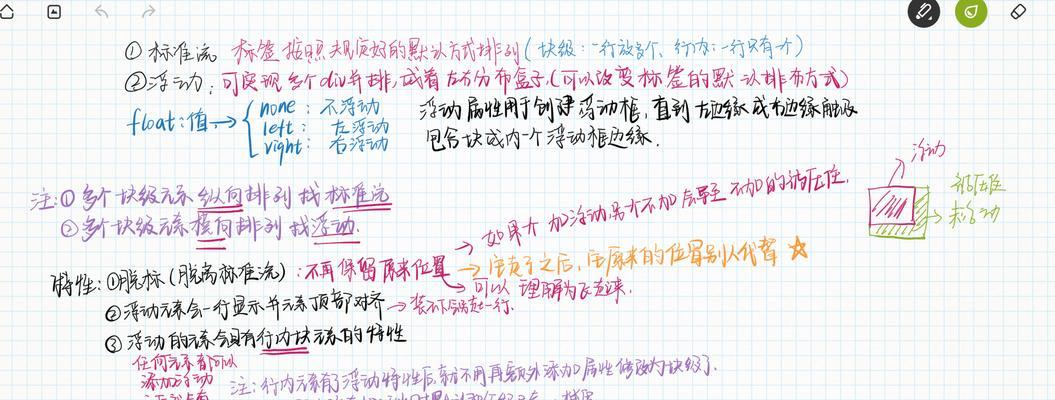 ① 标准流 标签按照规定好的默认方式排列(块级:一行放多个、行内:一行只有一个)
②浮动:可实现多个div并排,或者左右分布盒子,(可以改变标签的默认排布方式)
float:值→{ none:不浮动
left:左浮动
right:右浮动
浮动属性用于创建浮动框,直到左边缘或右边缘触及
包含块或内一个浮动框边缘.
浮动
被压住
未浮动
注:①多个块级元素纵向排列找标准流
②多个块级元素横向排列找浮动.
→如果个加浮动,另个不加会导至不加的被压住.
特性:①脱标(脱离标准流):不再保留原来位置→住走了之后,原来的位置别人代替☆
→可以理解为飞起来.
②浮动元素会一行显示并元素顶部对齐→装不下另起一行.
③浮动的元素会具有行内块元素的特性
任何元素都可以
添加浮动
注:行内元素有了浮动特性后,就不用再额外添加属性修改为块级了.